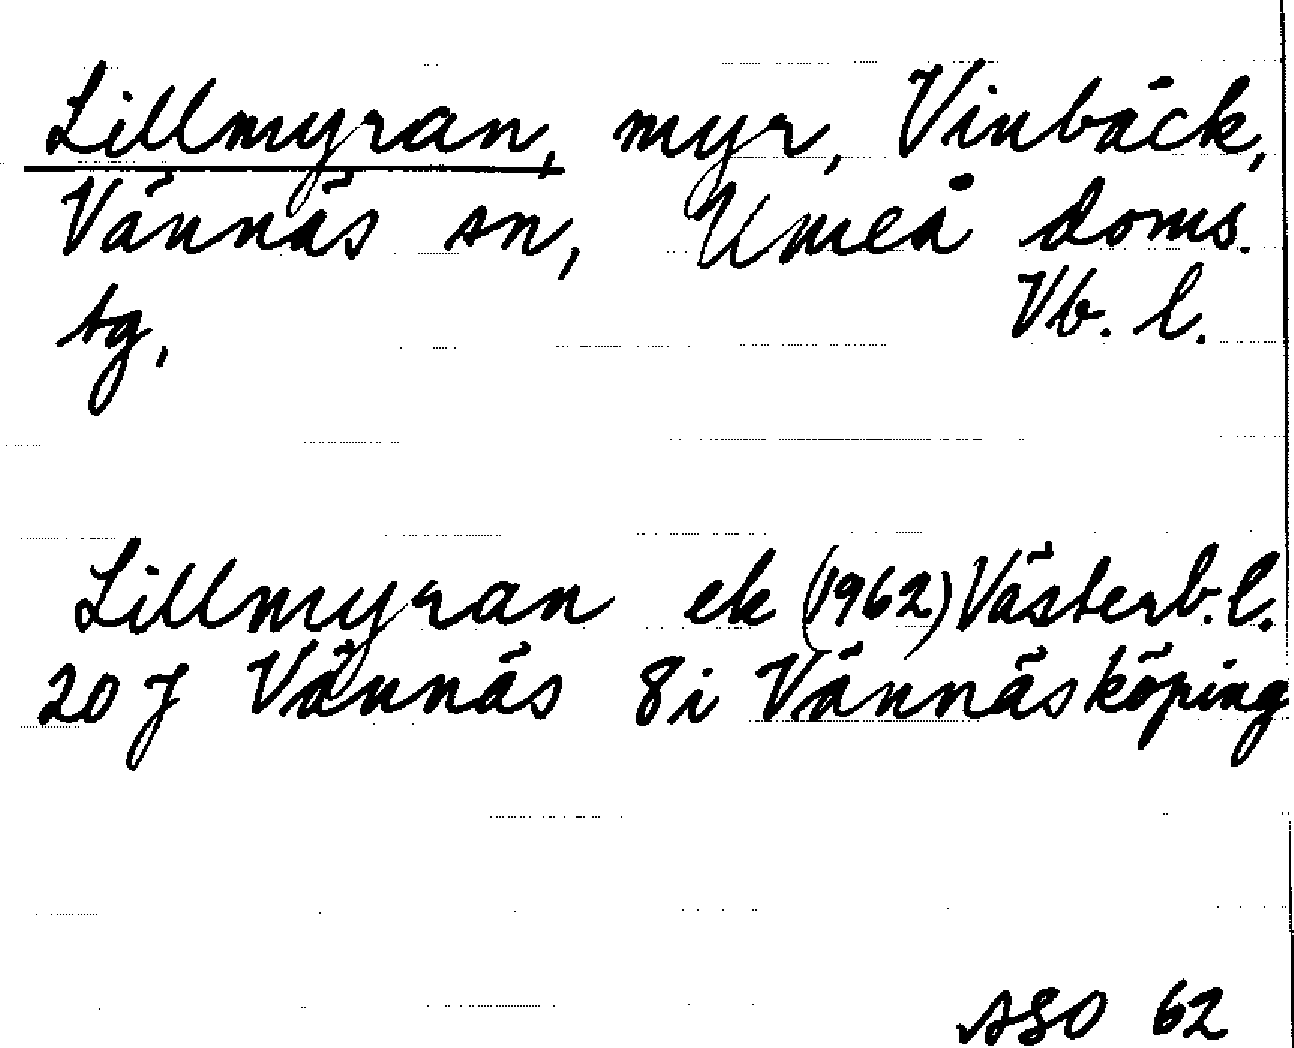 Lillmyran, myr, Vinbäck,
Vännäs sn, Umeå doms.
tg, Vb. l.
Lillmyran ek (1962) Västerb. l.
20 J Vännäs 8i Vännäsköping
ASO 62